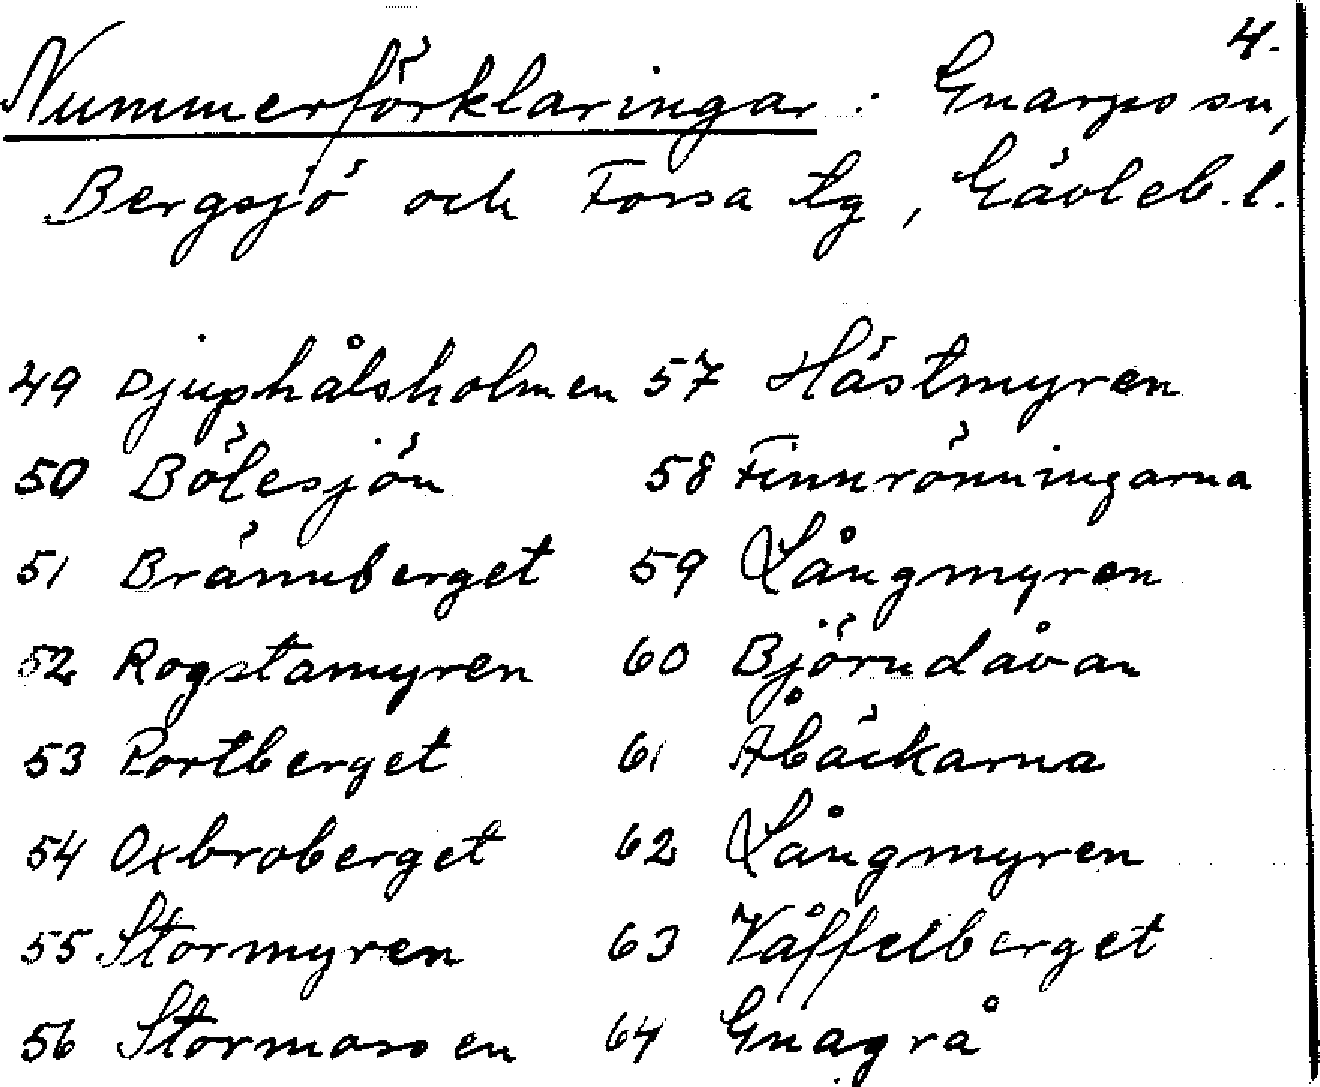 4.
Nummerförklaringar: Gnarps sn,
Bergsjö och Forsa tg, Gävleb.l.
49 Djuphålsholmen 57 Hästmyren
50 Bölesjön 58 Finnrönningarna
51 Brännberget 59 Långmyren
52 Rogstamyren 60 Björndåvan
53 Portberget 61 Åbäckarna
54 Oxbroberget 62 Långmyren
55 Stormyren 63 Våffelberget
56 Stormossen 64 Gnagrå